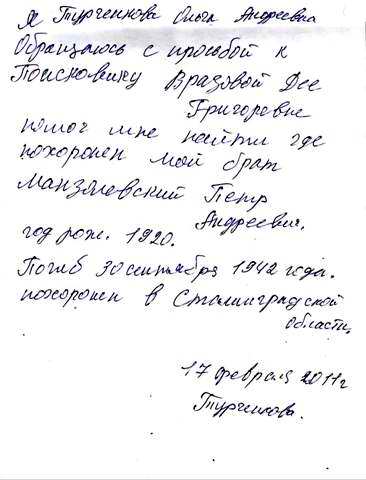 Я Турченкова Ольга Андреевна
Обращаюсь с просьбой к
Поисковику Вразовой Дее
Григоревне
помоч мне найти где
похоронен мой брат
Манзолевский Петр
Андреевич.
год рож. 1920.
Погиб 30 сентября 1942 года.
похоронен в Сталинградской
области,
17 февраля 2011г
Турченкова.